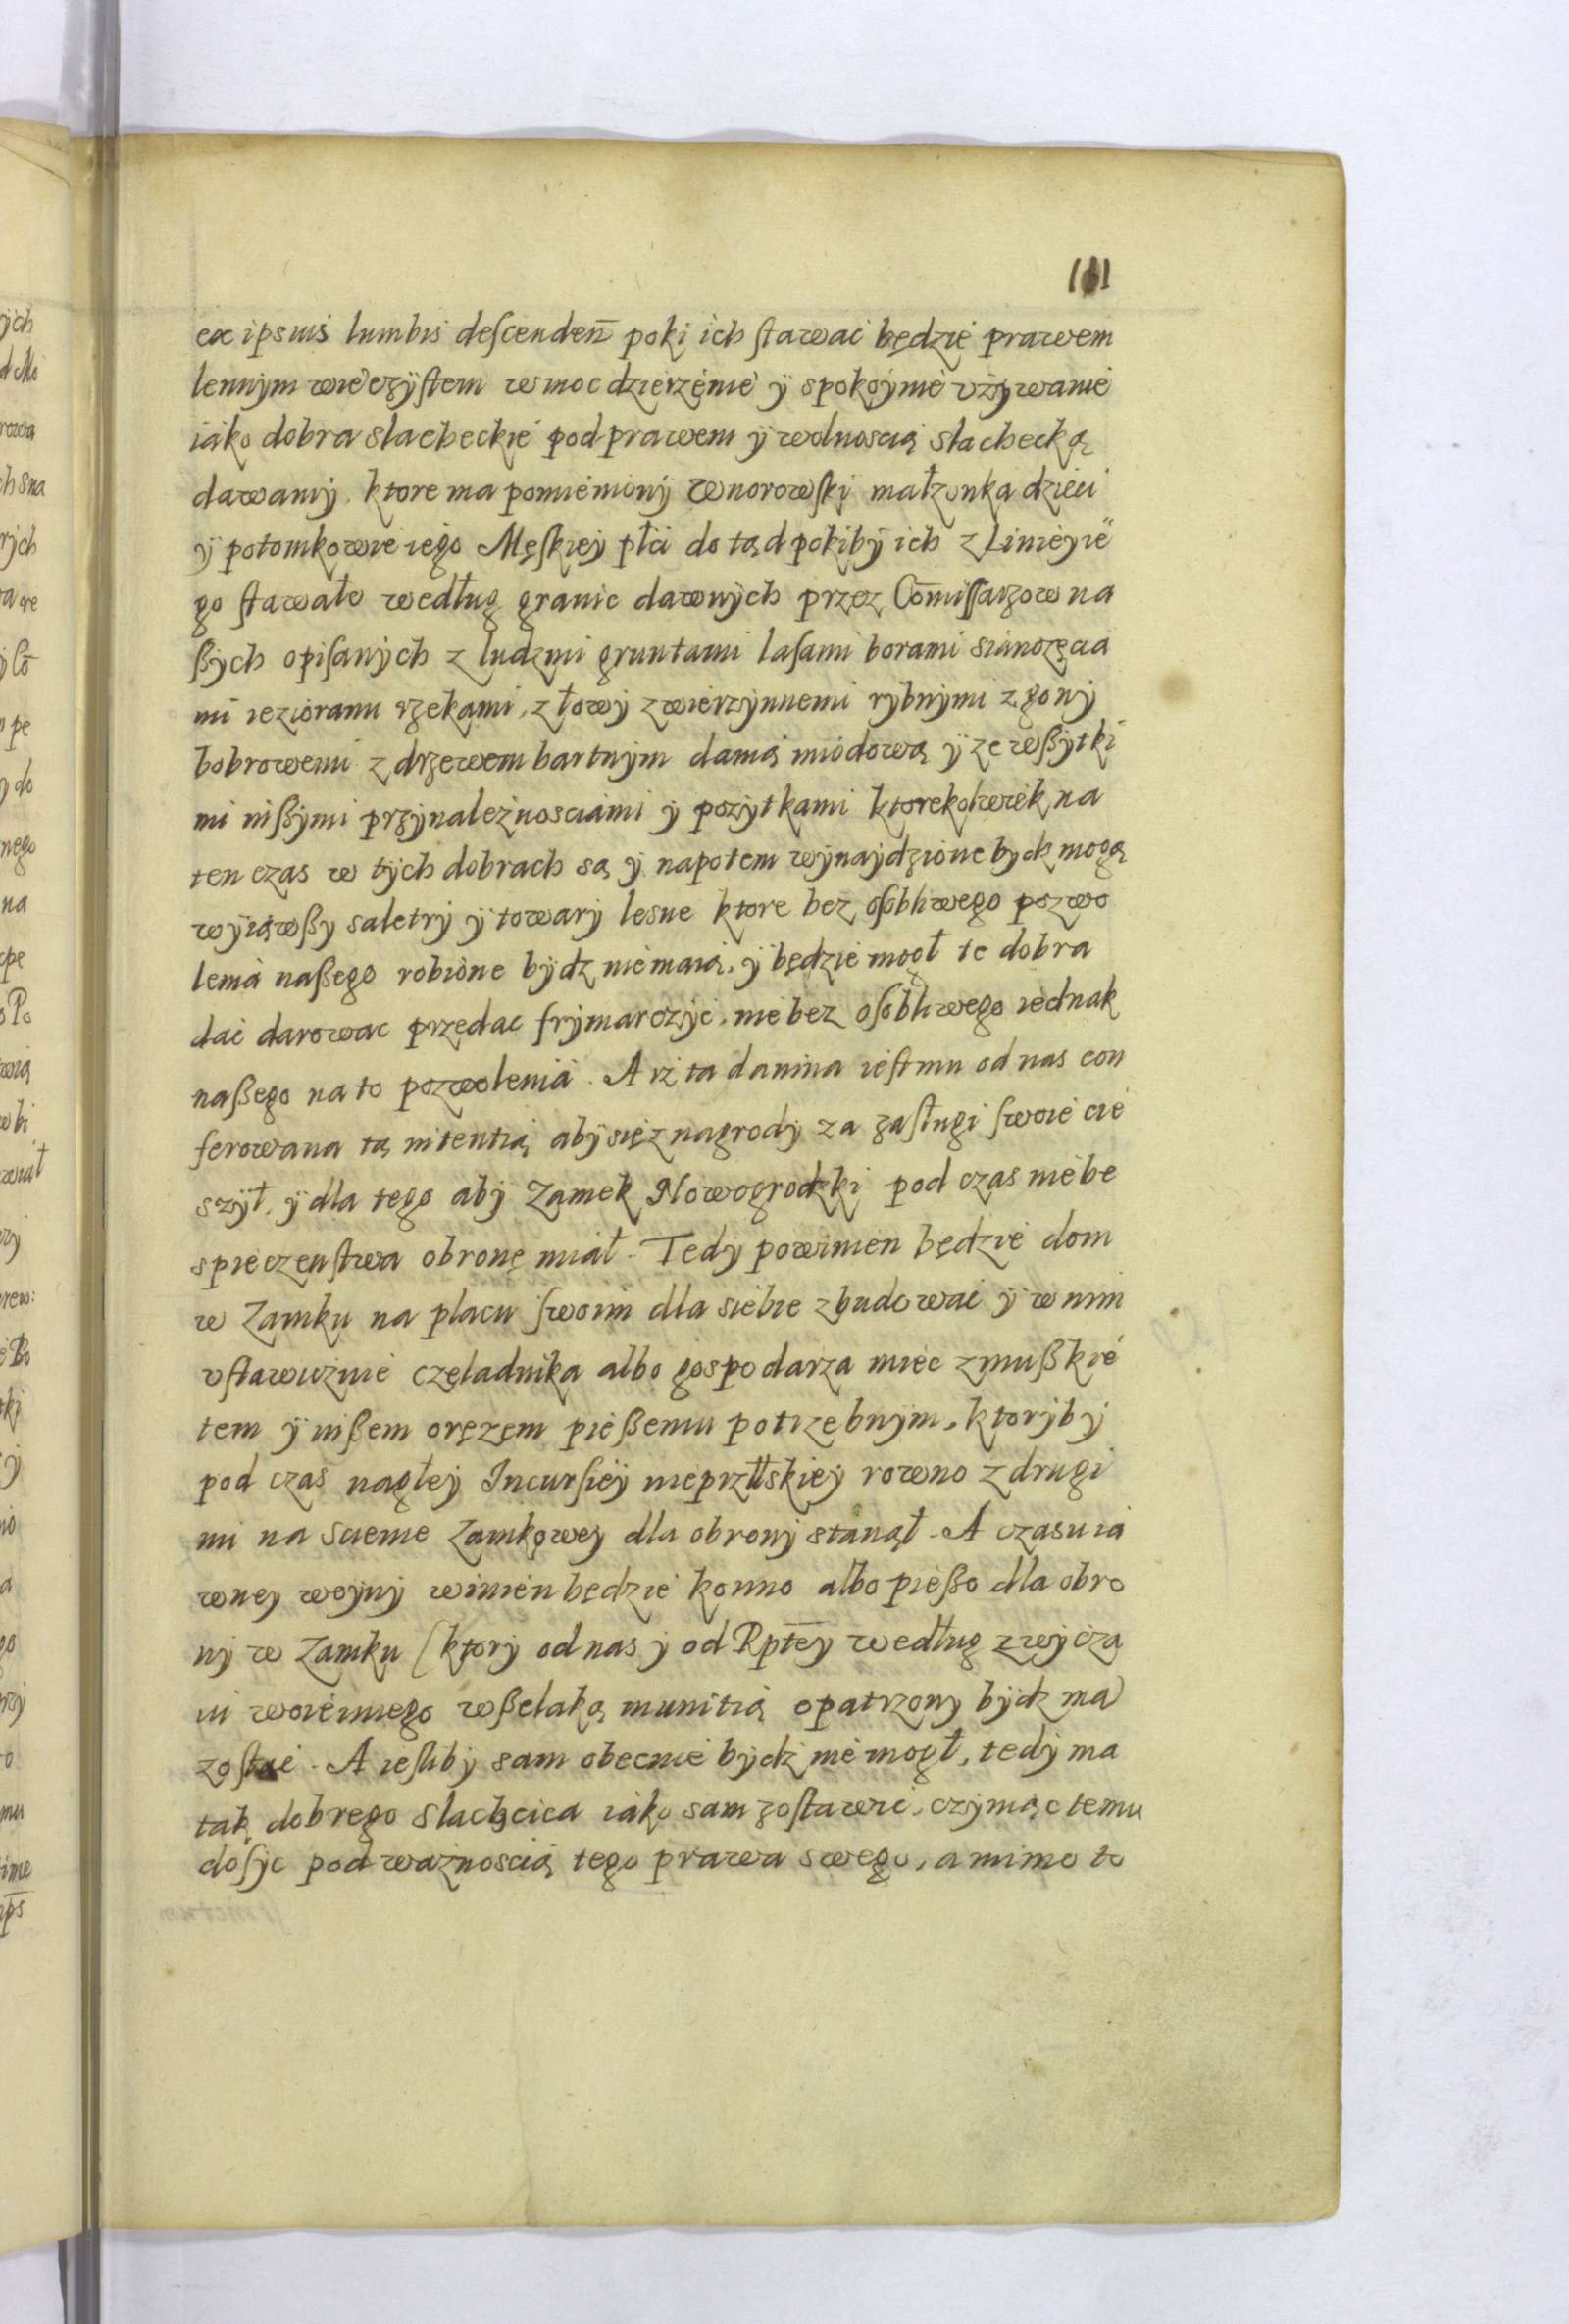 111
ex ipsius lumbis descenden̄ poki ich stawac będzie prawem
lennym wieczystem w moc dzierzenie y spokoyine vżywanie
iako dobra slacheckie pod prawem y wolnoscią slachecką
dawamy. ktore ma pomieniony Wnorowski małzonka dzieci
y potomkowie iego Męskiey płci do tąd pokiby ich z Linieyie
go stawało według granic dawnych przez Com̄issarzow na
ßych opisanych z ludzmi gruntami lasami borami sianozęcia
mi iezioramu rzekami, z łowy zwierzynnemi rybnymi z gony
bobrowemi z drzewem bartnym danią miodową y ze wßytki
mi inßymi przynależnosciami y pozytkami ktorekolwiek na
ten czas w tych dobrach są y napotem wynaydzione bydz mogą
wyiąwßy saletry y towary lesne ktore bez osobliwego pozwo
lenia naßego robione bydz niemaią, y będzie mogł te dobra
dac darowac przedac frymarczyc, nie bez osobliwego iednak
naßego na to pozwolenia. A iż ta danina iest mu od nas con
ferowana tą intentią aby się z nagrody za zasługi swoie cie
szył, y dla tego aby Zamek Nowogrodzki pod czas niebe
spieczenstwa obronę miał. Tedy powinien będzie dom
w Zamku na placu swoim dla siebie zbudowac y w nim
vstawicznie czeladnika albo gospodarza miec z mußkie
tem y inßem orężem pießemu potrzebnym, ktoryby
pod czas nagłey Incursiey nieprzłłskiey rowno z drugi
mi na scienie Zamkowey dla obrony stanął. A czasu ia
wney woyny winien będzie konno albo pießo dla obro
ny w Zamku (ktory od nas y od Rpt̄ey według zwycza
iu woiennego wßelaką munitią opatrzony bydz ma)
zostac. A iesliby sam obecnie bydź nie mogł, tedy ma
tak dobrego slachcica iako sam zostawic, czyniąc temu
dosyc pod ważnoscią tego prawa swego, a mimo to